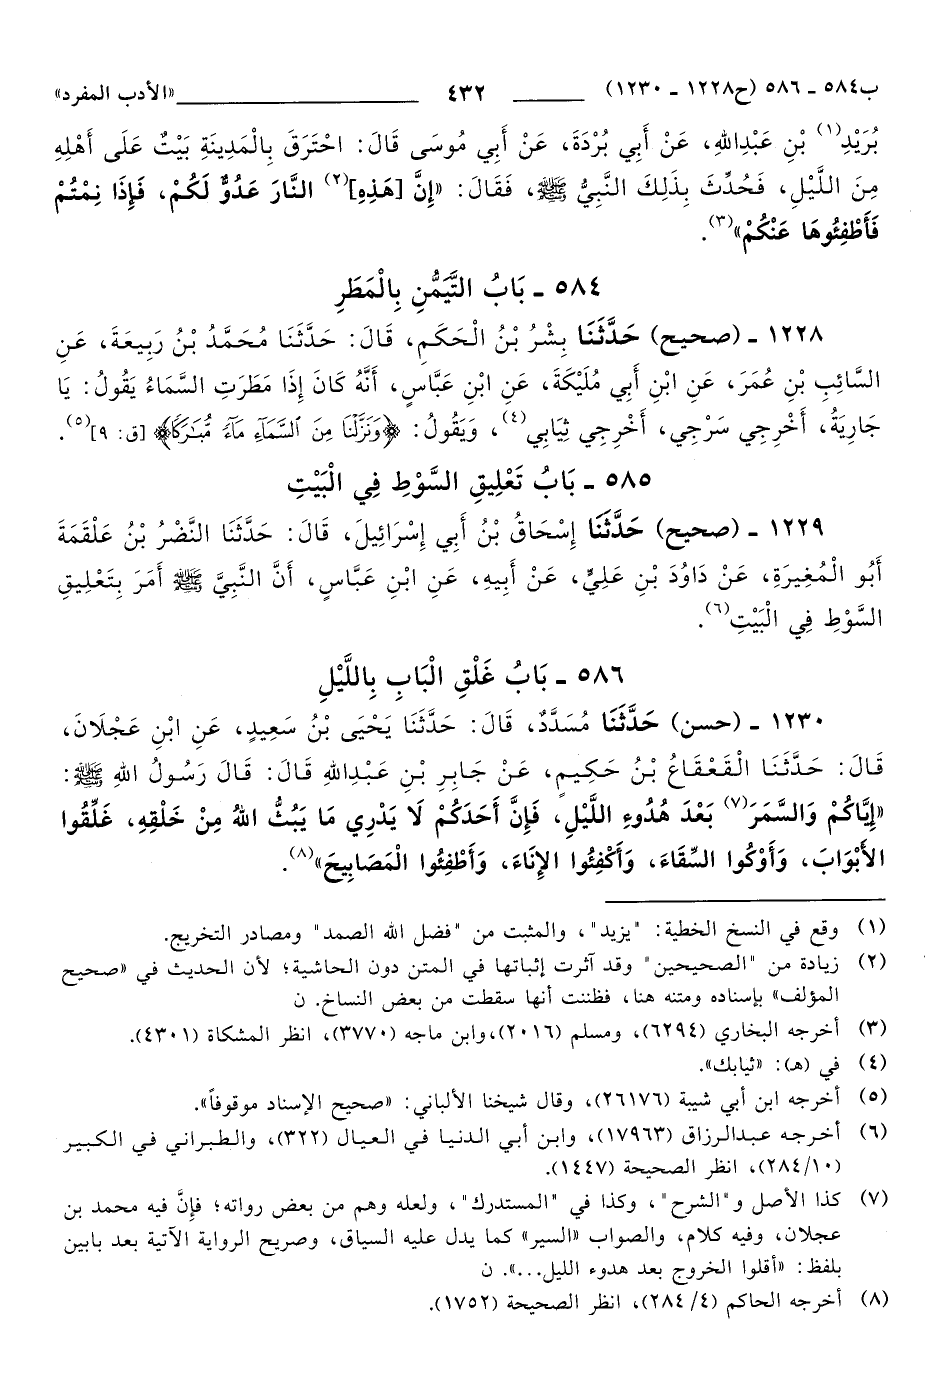 ب٥٨٤ ـ ٥٨٦ (ح١٢٢٨ ـ ١٢٣٠) ٤٣٢ «الأدب المفرد»
بُرَيْدِ(١) بْنِ عَبْدِاللهِ، عَنْ أَبِي بُرْدَةَ، عَنْ أَبِي مُوسَى قَالَ: احْتَرَقَ بِالْمَدِينَةِ بَيْتٌ عَلَى أَهْلِهِ
مِنَ اللَّيْلِ، فَحُدِّثَ بِذَلِكَ النَّبِيُّ ﷺ، فَقَالَ: «إِنَّ [هَذِهِ](٢) النَّارَ عَدُوٌّ لَكُمْ، فَإِذَا نِمْتُمْ
فَأَطْفِئُوهَا عَنْكُمْ»(٣).
٥٨٤ ـ بَابُ التَّيَمُّنِ بِالْمَطَرِ
١٢٢٨ ـ (صحيح) حَدَّثَنَا بِشْرُ بْنُ الْحَكَمِ، قَالَ: حَدَّثَنَا مُحَمَّدُ بْنُ رَبِيعَةَ، عَنِ
السَّائِبِ بْنِ عُمَرَ، عَنِ ابْنِ أَبِي مُلَيْكَةَ، عَنِ ابْنِ عَبَّاسٍ، أَنَّهُ كَانَ إِذَا مَطَرَتِ السَّمَاءُ يَقُولُ: يَا
جَارِيَةُ، أَخْرِجِي سَرْجِي، أَخْرِجِي ثِيَابِي(٤)، وَيَقُولُ: ﴿وَنَزَّلْنَا مِنَ ٱلسَّمَآءِ مَآءً مُّبَٰرَكًا﴾ [ق: ٩](٥).
٥٨٥ ـ بَابُ تَعْلِيقِ السَّوْطِ فِي الْبَيْتِ
١٢٢٩ ـ (صحيح) حَدَّثَنَا إِسْحَاقُ بْنُ أَبِي إِسْرَائِيلَ، قَالَ: حَدَّثَنَا النَّضْرُ بْنُ عَلْقَمَةَ
أَبُو الْمُغِيرَةِ، عَنْ دَاوُدَ بْنِ عَلِيٍّ، عَنْ أَبِيهِ، عَنِ ابْنِ عَبَّاسٍ، أَنَّ النَّبِيَّ ﷺ أَمَرَ بِتَعْلِيقِ
السَّوْطِ فِي الْبَيْتِ(٦).
٥٨٦ ـ بَابُ غَلْقِ الْبَابِ بِاللَّيْلِ
١٢٣٠ ـ (حسن) حَدَّثَنَا مُسَدَّدٌ، قَالَ: حَدَّثَنَا يَحْيَى بْنُ سَعِيدٍ، عَنِ ابْنِ عَجْلَانَ،
قَالَ: حَدَّثَنَا الْقَعْقَاعُ بْنُ حَكِيمٍ، عَنْ جَابِرِ بْنِ عَبْدِاللهِ قَالَ: قَالَ رَسُولُ اللهِ ﷺ:
«إِيَّاكُمْ وَالسَّمَرَ(٧) بَعْدَ هُدُوءِ اللَّيْلِ، فَإِنَّ أَحَدَكُمْ لَا يَدْرِي مَا يَبُثُّ اللهُ مِنْ خَلْقِهِ، غَلِّقُوا
الأَبْوَابَ، وَأَوْكُوا السِّقَاءَ، وَأَكْفِئُوا الإِنَاءَ، وَأَطْفِئُوا الْمَصَابِيحَ»(٨).
(١) وقع في النسخ الخطية: "يزيد"، والمثبت من "فضل الله الصمد" ومصادر التخريج.
(٢) زيادة من "الصحيحين" وقد آثرت إثباتها في المتن دون الحاشية؛ لأن الحديث في «صحيح
المؤلف» بإسناده ومتنه هنا، فظننت أنها سقطت من بعض النساخ. ن
(٣) أخرجه البخاري (٦٢٩٤)، ومسلم (٢٠١٦)،وابن ماجه (٣٧٧٠)، انظر المشكاة (٤٣٠١).
(٤) في (هـ): «ثيابك».
(٥) أخرجه ابن أبي شيبة (٢٦١٧٦)، وقال شيخنا الألباني: «صحيح الإسناد موقوفاً».
(٦) أخرجه عبدالرزاق (١٧٩٦٣)، وابن أبي الدنيا في العيال (٣٢٢)، والطبراني في الكبير
(٢٨٤/١٠)، انظر الصحيحة (١٤٤٧).
(٧) كذا الأصل و"الشرح"، وكذا في "المستدرك"، ولعله وهم من بعض رواته؛ فإنَّ فيه محمد بن
عجلان، وفيه كلام، والصواب «السير» كما يدل عليه السياق، وصريح الرواية الآتية بعد بابين
بلفظ: «أقلوا الخروج بعد هدوء الليل...». ن
(٨) أخرجه الحاكم (٢٨٤/٤)، انظر الصحيحة (١٧٥٢).